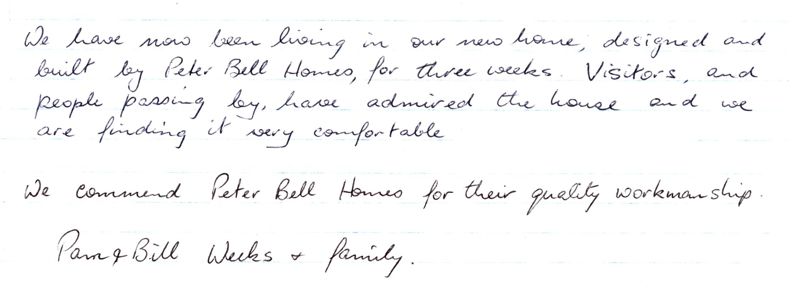 We have now been living in our new home, designed and
built by Peter Bell Homes, for three weeks. Visitors, and
people passing by, have admired the house and we
are finding it very comfortable
We commend Peter Bell Homes for their quality workmanship.
Pam & Bill Weeks & family.